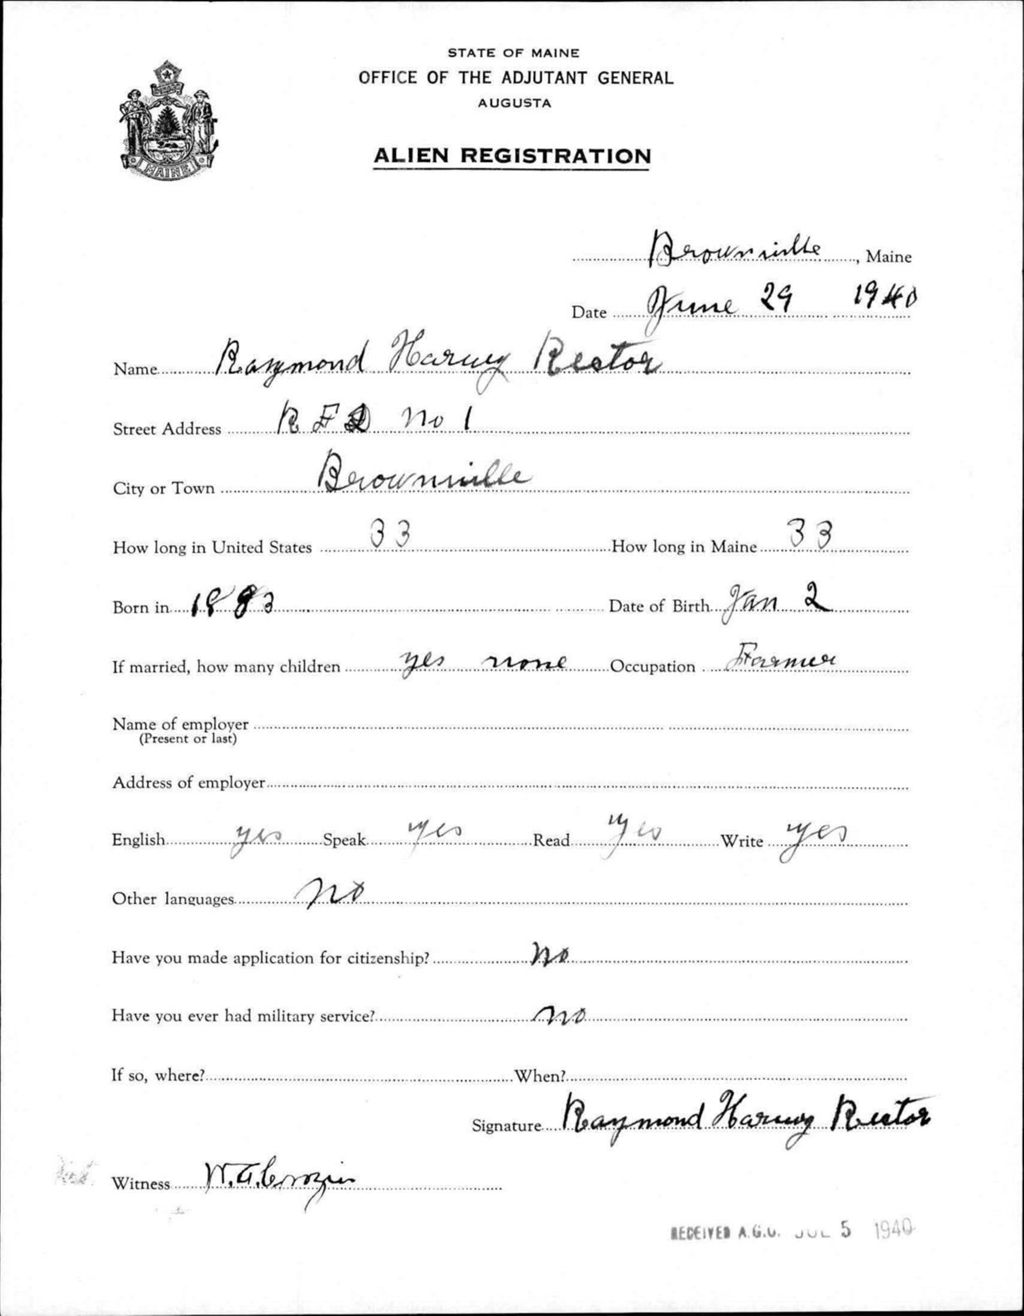 STATE OF MAINE
OFFICE OF THE ADJUTANT GENERAL
AUGUSTA
ALIEN REGISTRATION
MAINE
Brownville, Maine
Date June 29 1940
Name Raymond Harvey Rector
Street Address R F D No 1
City or Town Brownville
How long in United States 33 How long in Maine 33
Born in 1883 Date of Birth Jan 2
If married, how many children yes none Occupation Farmer
Name of employer
(Present or last)
Address of employer
English yes Speak yes Read yes Write yes
Other languages no
Have you made application for citizenship? No
Have you ever had military service? no
If so, where? When?
Signature Raymond Harvey Rector
Witness W.A.
RECEIVED A.G.O. JUL 5 1940